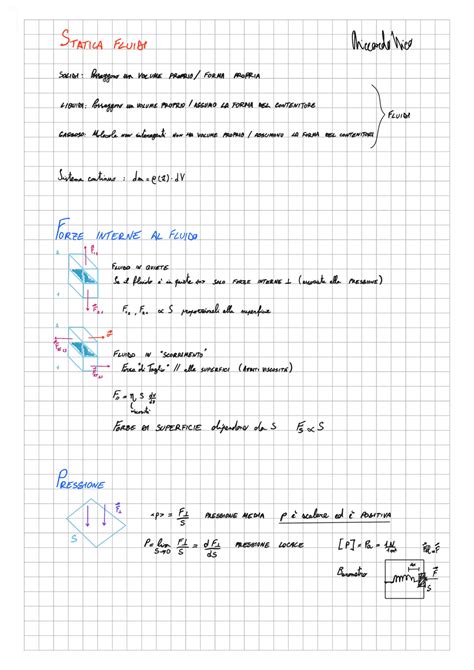 STATICA FLUIDI
Riccardo Nico
SOLIDI: Posseggono un VOLUME PROPRIO / FORMA PROPRIA
LIQUIDI: Posseggono un VOLUME PROPRIO / ASSUMO LA FORMA DEL CONTENITORE
FLUIDI
GASSOSO: Molecole non interagenti NON HA VOLUME PROPRIO / ASSUMONO LA FORMA DEL CONTENITORE
Sistema continuo : dm = ρ(r) · dV
FORZE INTERNE AL FLUIDO
FLUIDO IN QUIETE
Se il fluido è in quiete <=> SOLO FORZE INTERNE ⊥ (associata alla PRESSIONE)
F₁,₂ , F₂,₁ ∝ S proporzionali alla superficie
FLUIDO IN "SCORRIMENTO"
Forza "di Taglio" // alle SUPERFICI (ATTRITI VISCOSITÀ)
viscosità
FORZE DI SUPERFICIE dipendono da S Fs ∝ S
PRESSIONE
<p> = F⊥/S PRESSIONE MEDIA p è scalare ed è POSITIVA
S
P = lim S→0 F⊥/S = dF⊥/dS PRESSIONE LOCALE [P] = Pa = 1N/1m²
Barometro
Δx
F
S